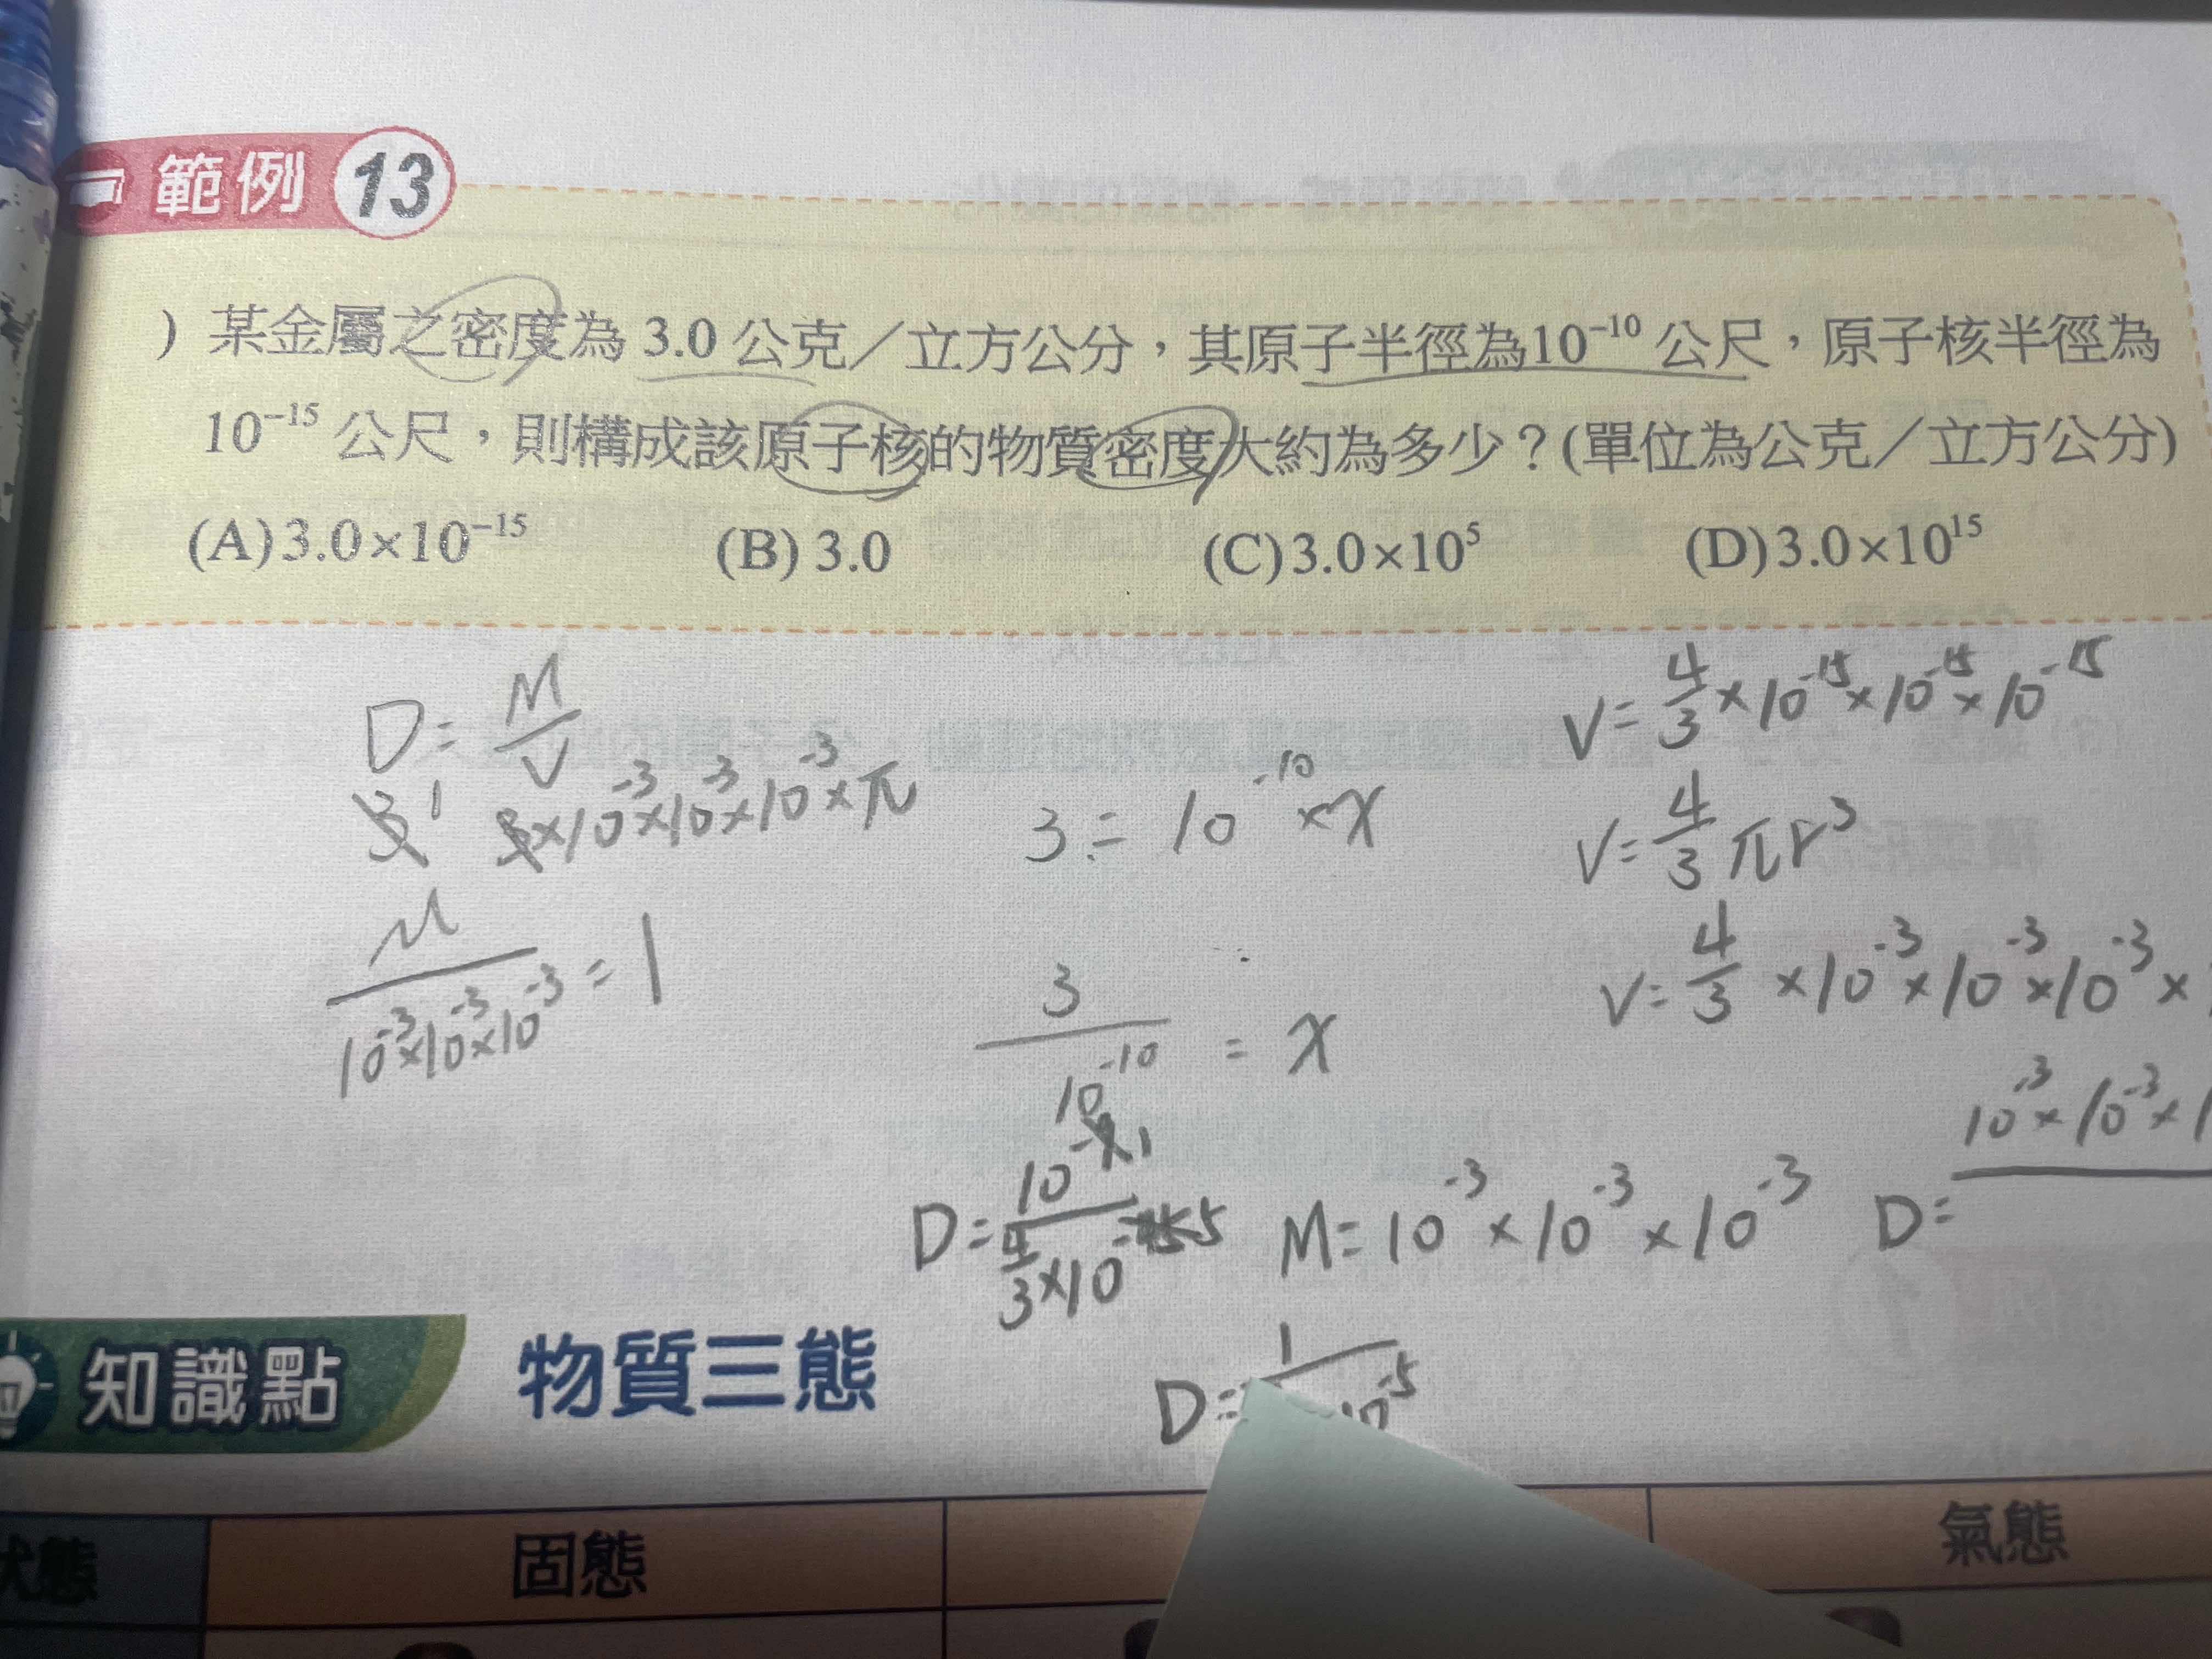 範例 13
) 某金屬之密度為 3.0 公克／立方公分，其原子半徑為10⁻¹⁰ 公尺，原子核半徑為
10⁻¹⁵ 公尺，則構成該原子核的物質密度大約為多少？(單位為公克／立方公分)
(A)3.0×10⁻¹⁵ (B) 3.0 (C)3.0×10⁵ (D)3.0×10¹⁵
D= M/V
V= 4/3 ×10⁻¹⁵×10⁻¹⁵×10⁻¹⁵
3 1 ×10⁻³×10⁻³×10⁻³×π
3 = 10⁻¹⁰ × x
V= 4/3 πr³
M/10⁻³×10⁻³×10⁻³ = 1
3/10⁻¹⁰ = x
V= 4/3 ×10⁻³×10⁻³×10⁻³×
10⁻³×10⁻³×
D=
M= 10⁻³×10⁻³×10⁻³
D=
D= 1
知識點 物質三態
狀態 固態 氣態